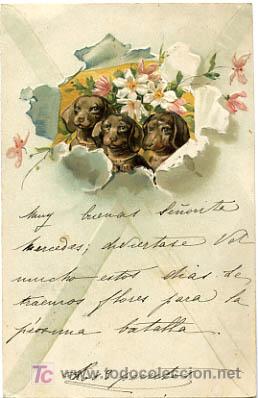 Muy buenas Señorita
Mercedas; diviertase Vd
mucho estos dias. le
traemos flores para la
próxima batalla.
TC www.todocoleccion.net